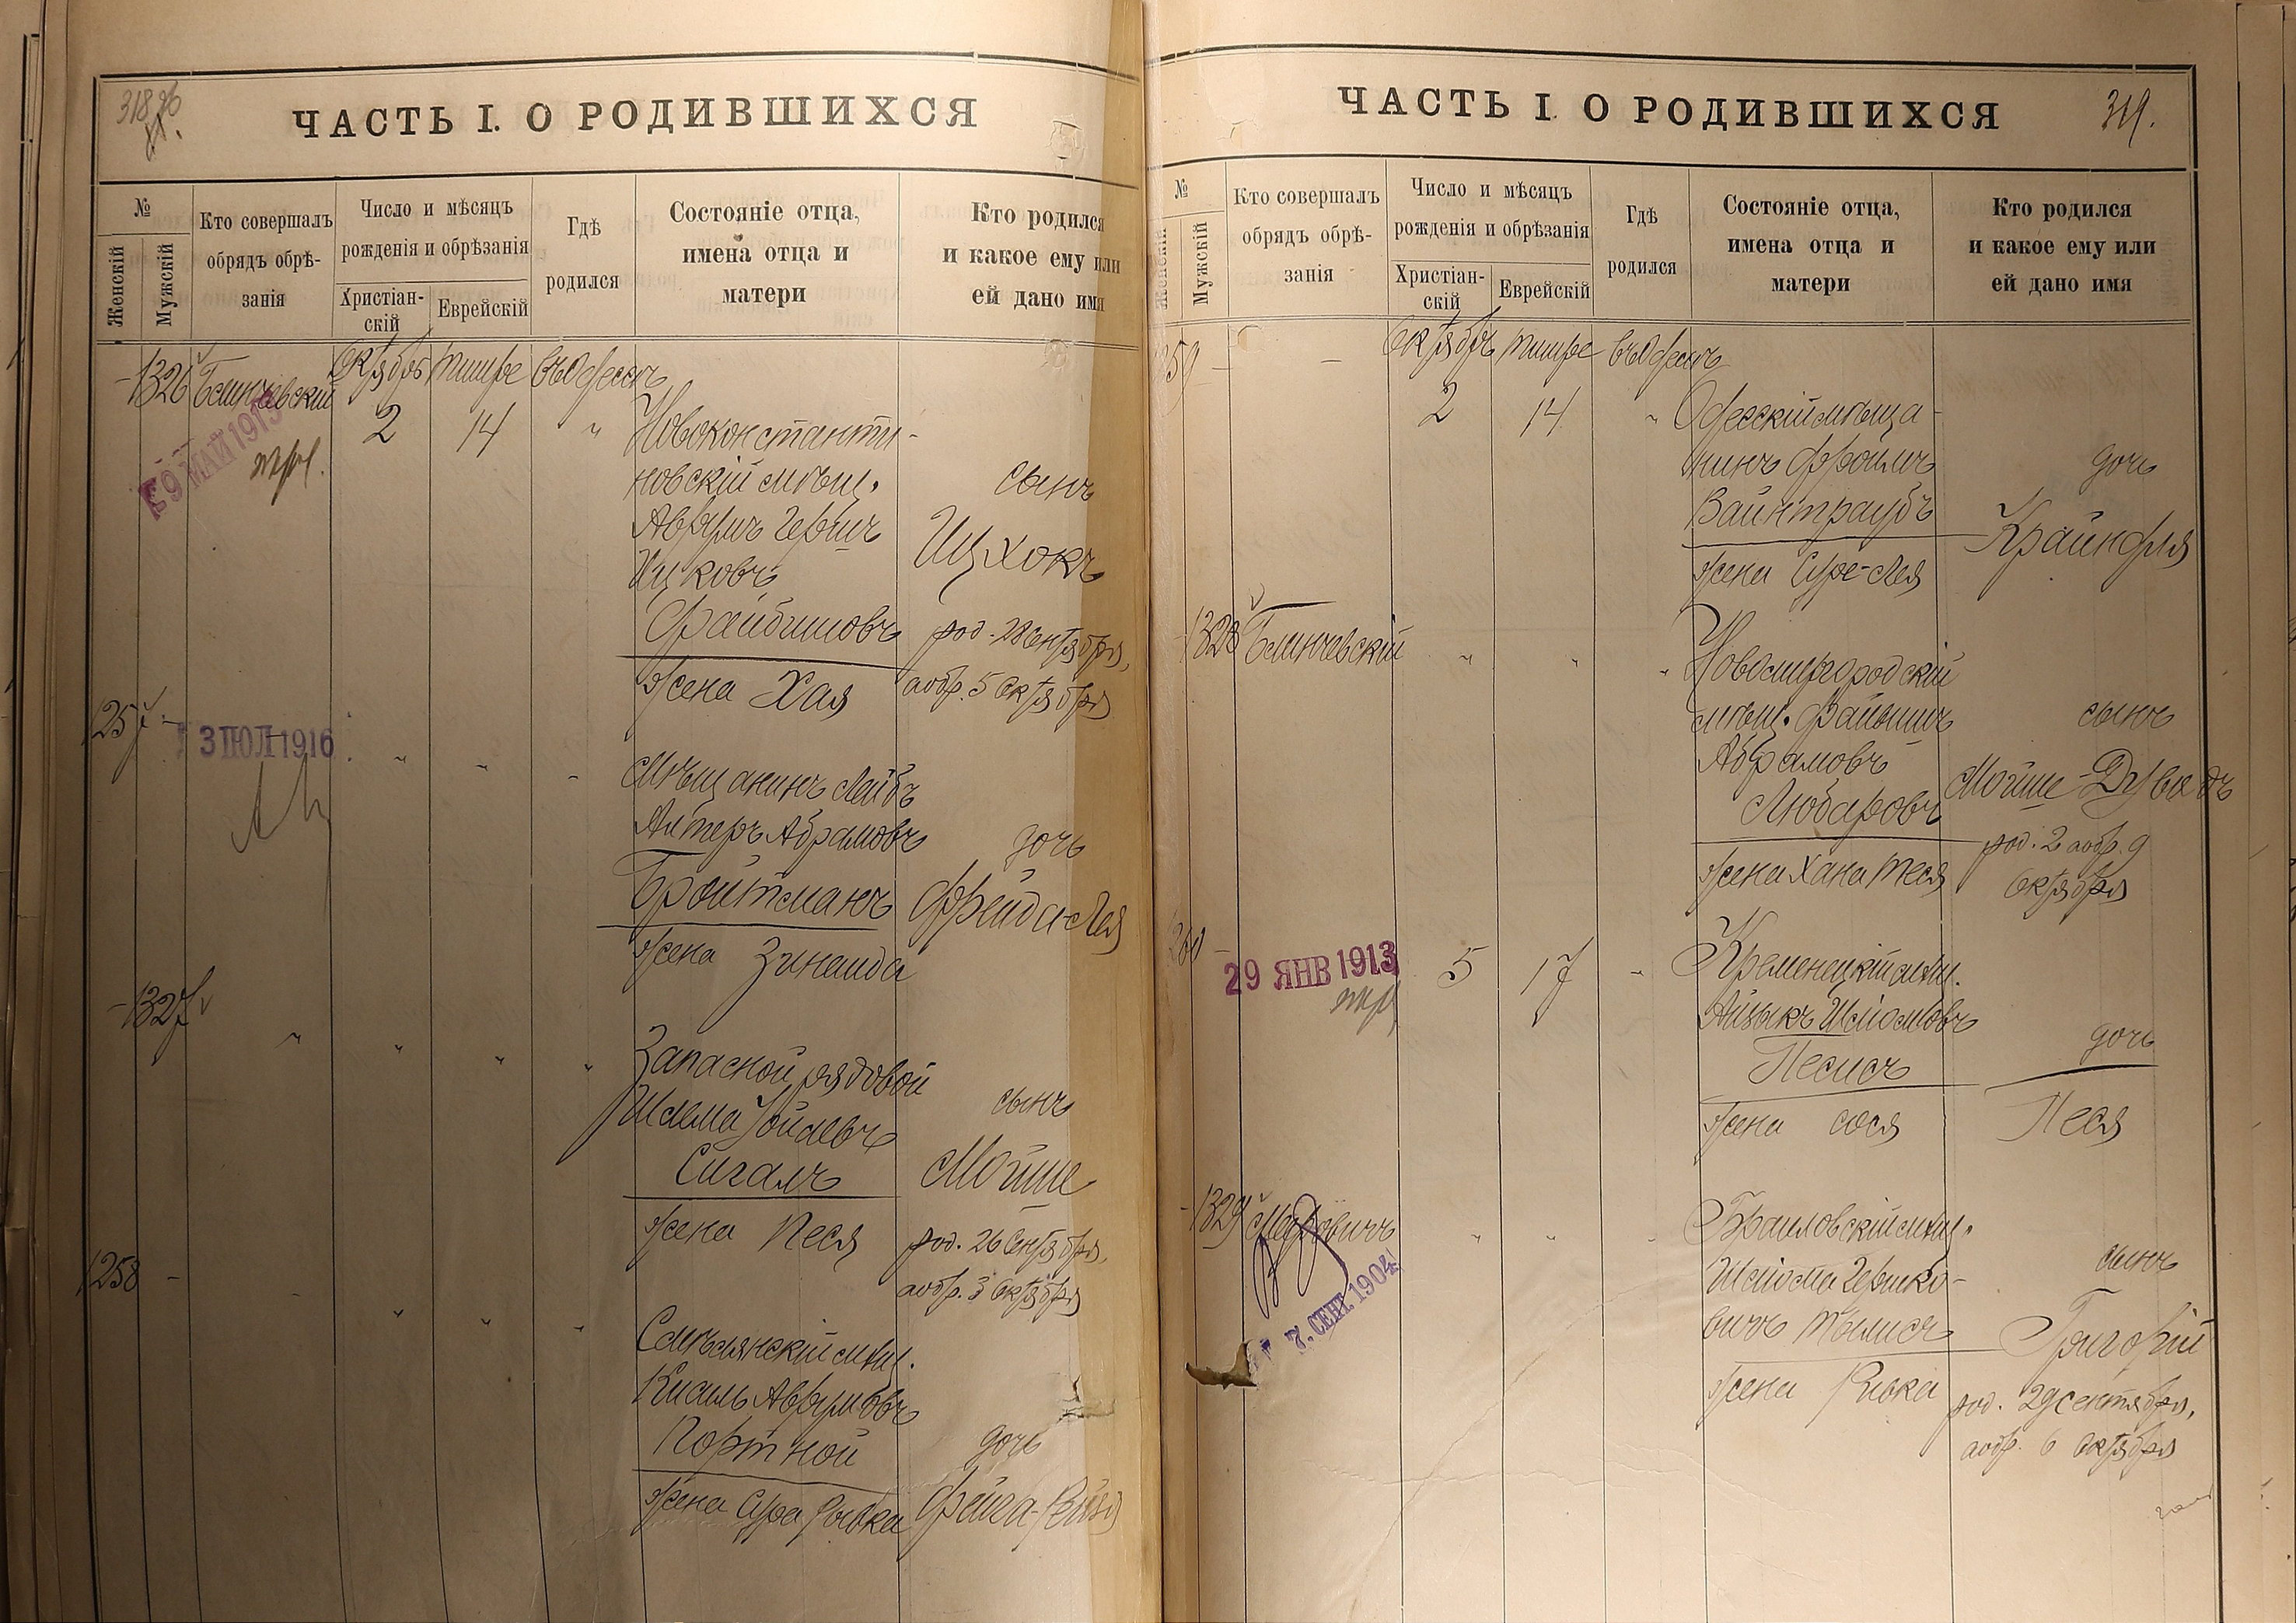 318 об
ЧАСТЬ I. О РОДИВШИХСЯ
№
Женскій
Мужскій
Кто совершалъ
обрядъ обрѣ-
занія
Число и мѣсяцъ
рожденія и обрѣзанія
Христіан-
скій
Еврейскій
Гдѣ
родился
Состояніе отца,
имена отца и
матери
Кто родился
и какое ему или
ей дано имя
1326
Блинчевскій
Октябрь Тишре въ Одессѣ
2 14 "
Новоконстанти-
новскій мѣщ.
Аврумъ Гершъ
Ицковъ
Файбишовъ
жена Хая
сынъ
Ицхокъ
род. 28 Сентября,
а обр. 5 Октября
9 МАЙ 1913
1257 -
3 ІЮЛ 1916
" " "
Мѣщанинъ Лейбъ
Алтеръ Абрамовъ
Бройтманъ
жена Зинаида
дочь
Фрейда-Лея
- 1327
" " " "
Запасной рядовой
Шлема Іойлевъ
Сигалъ
жена Песя
сынъ
Мойше
род. 26 Сентября,
а обр. 3 Октября
1258 -
" " "
Смѣлянскій мѣщ.
Кисиль Аврумовъ
Портной
жена Сура Рывка
дочь
Фейга-Рейзя
ЧАСТЬ I. О РОДИВШИХСЯ
319.
№
Женскій
Мужскій
Кто совершалъ
обрядъ обрѣ-
занія
Число и мѣсяцъ
рожденія и обрѣзанія
Христіан-
скій
Еврейскій
Гдѣ
родился
Состояніе отца,
имена отца и
матери
Кто родился
и какое ему или
ей дано имя
59 -
Октябрь Тишре въ Одессѣ
2 14 "
Одесскій мѣща-
нинъ Фроимъ
Вайнтраубъ
жена Суре-Лея
дочь
Крайндля
- 1328 Блинчевскій
" " "
Новомиргородскій
мѣщ. Файвишъ
Абрамовъ
Любаровъ
жена Хана Теся
сынъ
Мойше-Дувидъ
род. 2 а обр. 9
Октября
260 -
29 ЯНВ 1913
5 17 "
Кременецкій мѣщ.
Айзыкъ Шліомовъ
Песисъ
жена Сося
дочь
Песя
- 1329 Меровичъ
7. СЕН. 1904
" " "
Браиловскій мѣщ.
Шліома Гершко-
вичъ Тылисъ
жена Ривка
сынъ
Григорій
род. 29 сентября,
а обр. 6 Октября